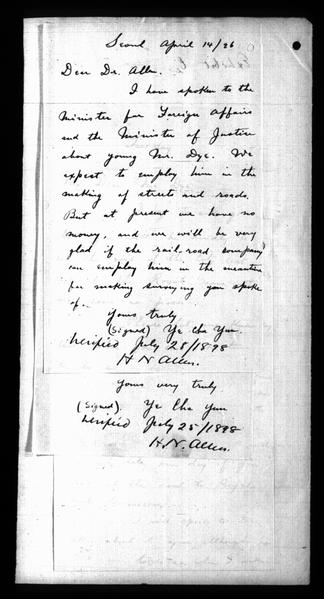 Seoul April 14/96
Dear Dr. Allen.
I have spoken to the
Minister for Foreign Affairs
and the Minister of Justice
about young Mr. Dye. We
expect to employ him in the
making of streets and roads.
But at present we have no
money, and we will be very
glad if the rail-road company
can employ him in the meantime
for making surveying you spoke
of.
Yours truly
(Signed) Ye Cha Yun.
Verified July 25/1898
H N Allen.
Yours very truly
(Signed) Ye Cha Yun
Verified July 25/1898
H. N. Allen.